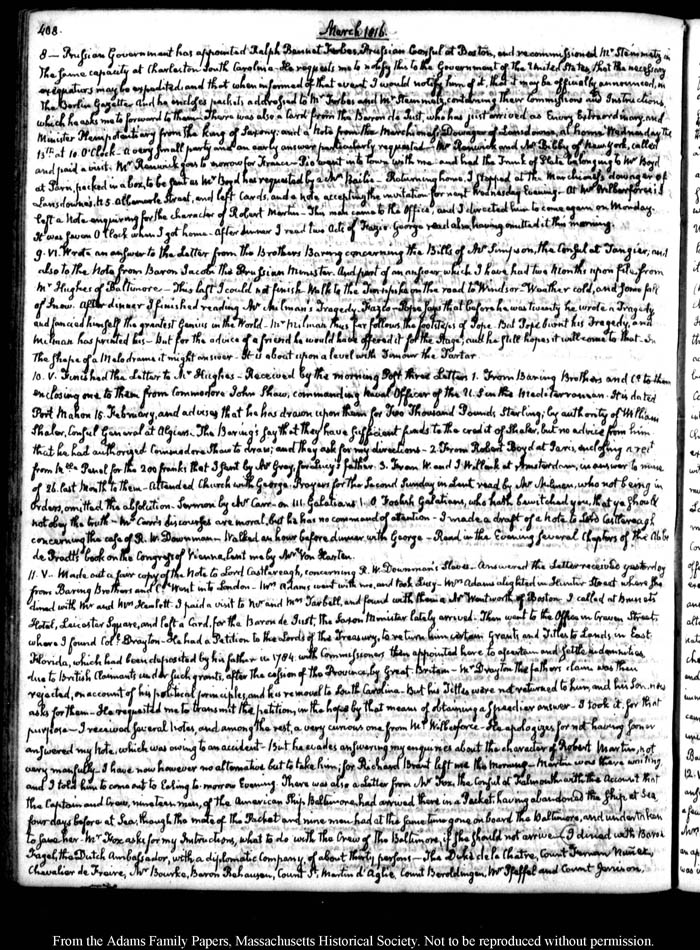 408.
March 1816.
8 — Prussian Government has appointed Ralph Bennet Forbes, Prussian Consul at Boston, and recommissioned Mr Steinmetz in
the same capacity at Charleston South Carolina. He requests me to notify this to the Government of the United States, that the necessary
exequaturs may be expedited, and that when informed of that event I would notify him of it, that it may be officially announced, in
the Berlin Gazette. And he incloses packets addressed to Mr Forbes and Mr Steinmetz, containing their Commissions and Instructions,
which he asks me to forward to them. There was also a Card from the Baron de Just, who has just arrived as Envoy Extraordinary and
Minister Plenipotentiary from the King of Saxony; and a Note from the Marchioness Dowager of Lansdowne, at home Wednesday the
13th at 10. O'Clock. a very small party and an early answer particularly requested. Mr Renwick and Mr Bibby of New York, called
and paid a visit. Mr Renwick goes to morrow for France. Pio went in to town with me and had the Trunk of Plate belonging to Mr Boyd
at Paris, packed in a box, to be sent as Mr Boyd has requested by a Mr Bailie. Returning home I stopped at the Marchioness dowager of
Lansdowne's N. 5. Albemarle Street, and left Cards, and a note accepting the invitation for next Wednesday Evening. At Mr Wilberforce's I
left a Note enquiring for the character of Robert Martin. This man came to the Office, and I directed him to come again on Monday.
It was seven O'Clock when I got home. After dinner I read two Acts of Fazio. George read also, having omitted it this morning.
9. VI. Wrote an answer to the Letter from the Brothers Baring concerning the Bills of Mr Simpson, the Consul at Tangier, and
also to the Note from Baron Jacobi the Prussian Minister. And part of an answer which I have had two Months upon file from
Mr Hughes of Baltimore. This last I could not finish. Walk to the Turnpike on the road to Windsor. Weather cold, and some fall
of Snow. After dinner I finished reading Mr Milman's Tragedy. Fazio. Pope says that before he was twenty he wrote a Tragedy
and fancied himself the greatest Genius in the World. Mr Milman thus far follows the footsteps of Pope. But Pope burnt his Tragedy, and
Milman has printed his — but for the advice of a friend he would have offered it for the Stage, and he still hopes it will come to that. In
the shape of a Melodrame it might answer. It is about upon a level with Timour the Tartar.
10. V. Finished the Letter to Mr Hughes. Received by the morning Post three Letters 1. From Baring Brothers and Co. to them
enclosing one to them from Commodore John Shaw, commanding Naval Officer of the U.S. in the Mediterranean. It is dated
Port Mahon 15. February, and advises that he has drawn upon them for Two Thousand Pounds Sterling; by authority of William
Shaler, Consul General at Algiers. The Baring's say that they have sufficient funds to the credit of Shaler, but no advice from him
that he had authorized Commodore Shaw to draw; and they ask for my directions. 2. From Robert Boyd at Paris, enclosing a rect
from Mlle Panel for the 200 franks that I sent by Mr Gray, for Lucy's father. 3. From W. and J. Willink at Amsterdam, in answer to mine
of 26. last Month to them. Attended Church with George. Prayers for the Second Sunday in Lent read by Mr McEwen, who not being in
Orders, omitted the absolution. Sermon by Mr Carr on III. Galatians 1. O Foolish Galatians, who hath bewitched you, that ye should
not obey the truth. Mr Carr's discourses are moral, but he has no command of attention. I made a draft of a Note to Lord Castlereagh
concerning the case of R. W. Downman. Walked an hour before dinner, with George. Read in the Evening several Chapters of the Abbe
de Pradt's book on the Congress of Vienna, lent me by Mr Von Harten.
11. V. Made out a fair copy of the Note to Lord Castlereagh, concerning R. W. Downman's Slaves. Answered the Letter received yesterday
from Baring Brothers and Co. Went into London. Mrs Adams went with me, and took Lucy. Mrs Adams alighted in Hunter Street where she
dined with Mr and Mrs Hewlett. I paid a visit to Mr and Mrs Tarbell, and found with them a Mr Wentworth of Boston. I called at Brunet's
Hotel, Leicester Square, and left a Card, for the Baron de Just, the Saxon Minister lately arrived. Then went to the Office in Craven Street,
where I found Coll. Drayton. He had a Petition to the Lords of the Treasury, to return him certain Grants and Titles to Lands in East
Florida, which had been deposited by his father in 1784. with Commissioners then appointed here to ascertain and settle indemnities
due to British Claimants under such grants, after the cession of the Province by Great Britain. Mr Drayton the father's claim was then
rejected, on account of his political principles, and his removal to South Carolina. But his Titles were not returned to him, and his Son, now
asks for them. He requested me to transmit the petition, in the hope by that means of obtaining a speedier answer. I took it for that
purpose. I received several Notes, and among the rest, a very curious one from Mr Wilberforce. He apologizes for not having sooner
answered my Note, which was owing to an accident. But he evades answering my enquiries about the character of Robert Martin, not
very manfully. I have now however no alternative but to take him; for Richard Brent left me this morning. Martin was there waiting
and I told him to come out to Ealing to-morrow Evening. There was also a Letter from Mr Fox, the Consul at Falmouth with the Account that
the Captain and Crew, nineteen men, of the American Ship Baltimore, had arrived there in a Packet: having abandoned the Ship at Sea
four days before at Sea; though the mate of the Packet and nine men had at the same time gone on board the Baltimore, and undertaken
to save her. Mr Fox asks for my Instructions, what to do with the Crew of the Baltimore, if she should not arrive. I dined with Baron
Fagel, the Dutch Ambassador, with a diplomatic Company, of about thirty persons. The Duke de la Chatre, Count Fernan Nuñez,
Chevalier de Freire, Mr Bourke, Baron Rehausen, Count St. Martin d'Aglie, Count Beroldingen, Mr Pfeffel and Count Jenison,
From the Adams Family Papers, Massachusetts Historical Society. Not to be reproduced without permission.